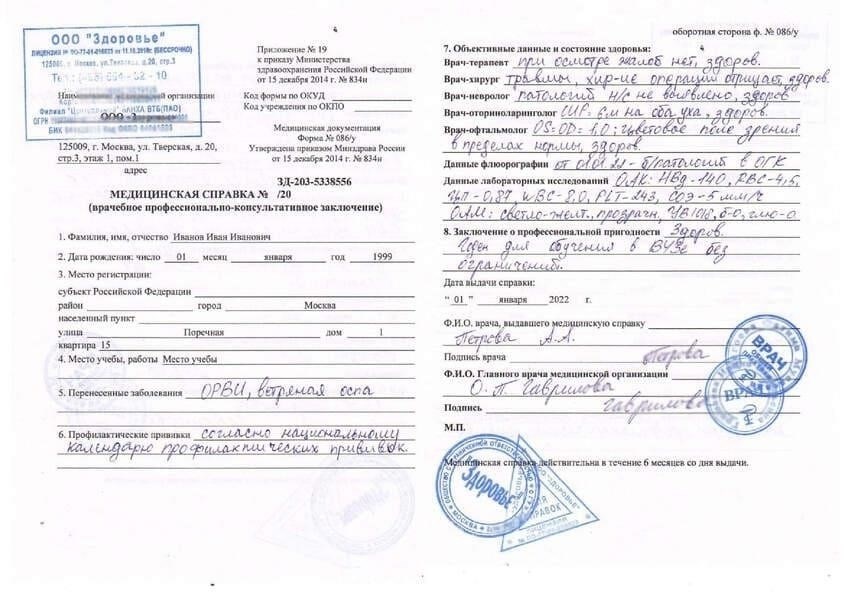 4
ООО "Здоровье"
Тел.:
Наименование медицинской организации
ООО
125009, г. Москва, ул. Тверская, д. 20,
стр.3, этаж 1, пом.1
адрес
Приложение № 19
к приказу Министерства
здравоохранения Российской Федерации
от 15 декабря 2014 г. № 834н
Код формы по ОКУД
Код учреждения по ОКПО
Медицинская документация
Форма № 086/у
Утверждена приказом Минздрава России
от 15 декабря 2014 г. № 834н
ЗД-203-5338556
МЕДИЦИНСКАЯ СПРАВКА № /20
(врачебное профессионально-консультативное заключение)
1. Фамилия, имя, отчество Иванов Иван Иванович
2. Дата рождения: число 01 месяц января год 1999
3. Место регистрации:
субъект Российской Федерации
район город Москва
населенный пункт
улица Поречная дом 1
квартира 15
4. Место учебы, работы Место учебы
5. Перенесенные заболевания ОРВИ, ветряная оспа
6. Профилактические прививки согласно национальному
календарю профилактических прививок.
оборотная сторона ф. № 086/у
7. Объективные данные и состояние здоровья: 4
Врач-терапевт при осмотре жалоб нет, здоров.
Врач-хирург травмы, хир-ие операции отрицает, здоров.
Врач-невролог патологий н/с не выявлено, здоров
Врач-оториноларинголог ШР 6 м на оба уха, здоров.
Врач-офтальмолог OS=OD=1,0; цветовое поле зрения
в пределах нормы, здоров.
Данные флюорографии от 01.01.22 - б/патологий в ОГК
Данные лабораторных исследований ОАК: Hbд-140, RBC-4,5,
ЦП-0,87, WBC-8,0, PLT-243, СОЭ-5 мм/ч
ОАМ: светло-желт., прозрачн, УВ1018, б-0, глю-0
8. Заключение о профессиональной пригодности Здоров.
Годен для обучения в ВУЗе без
ограничений.
Дата выдачи справки:
" 01 " января 2022 г.
Ф.И.О. врача, выдавшего медицинскую справку
Петрова А.А.
Подпись врача Петрова
Ф.И.О. Главного врача медицинской организации
О. П. Гаврилова
Подпись Гаврилова
М.П.
Медицинская справка действительна в течение 6 месяцев со дня выдачи.
ВРАЧ
ВРАЧ
Здоровье
МОСКВА